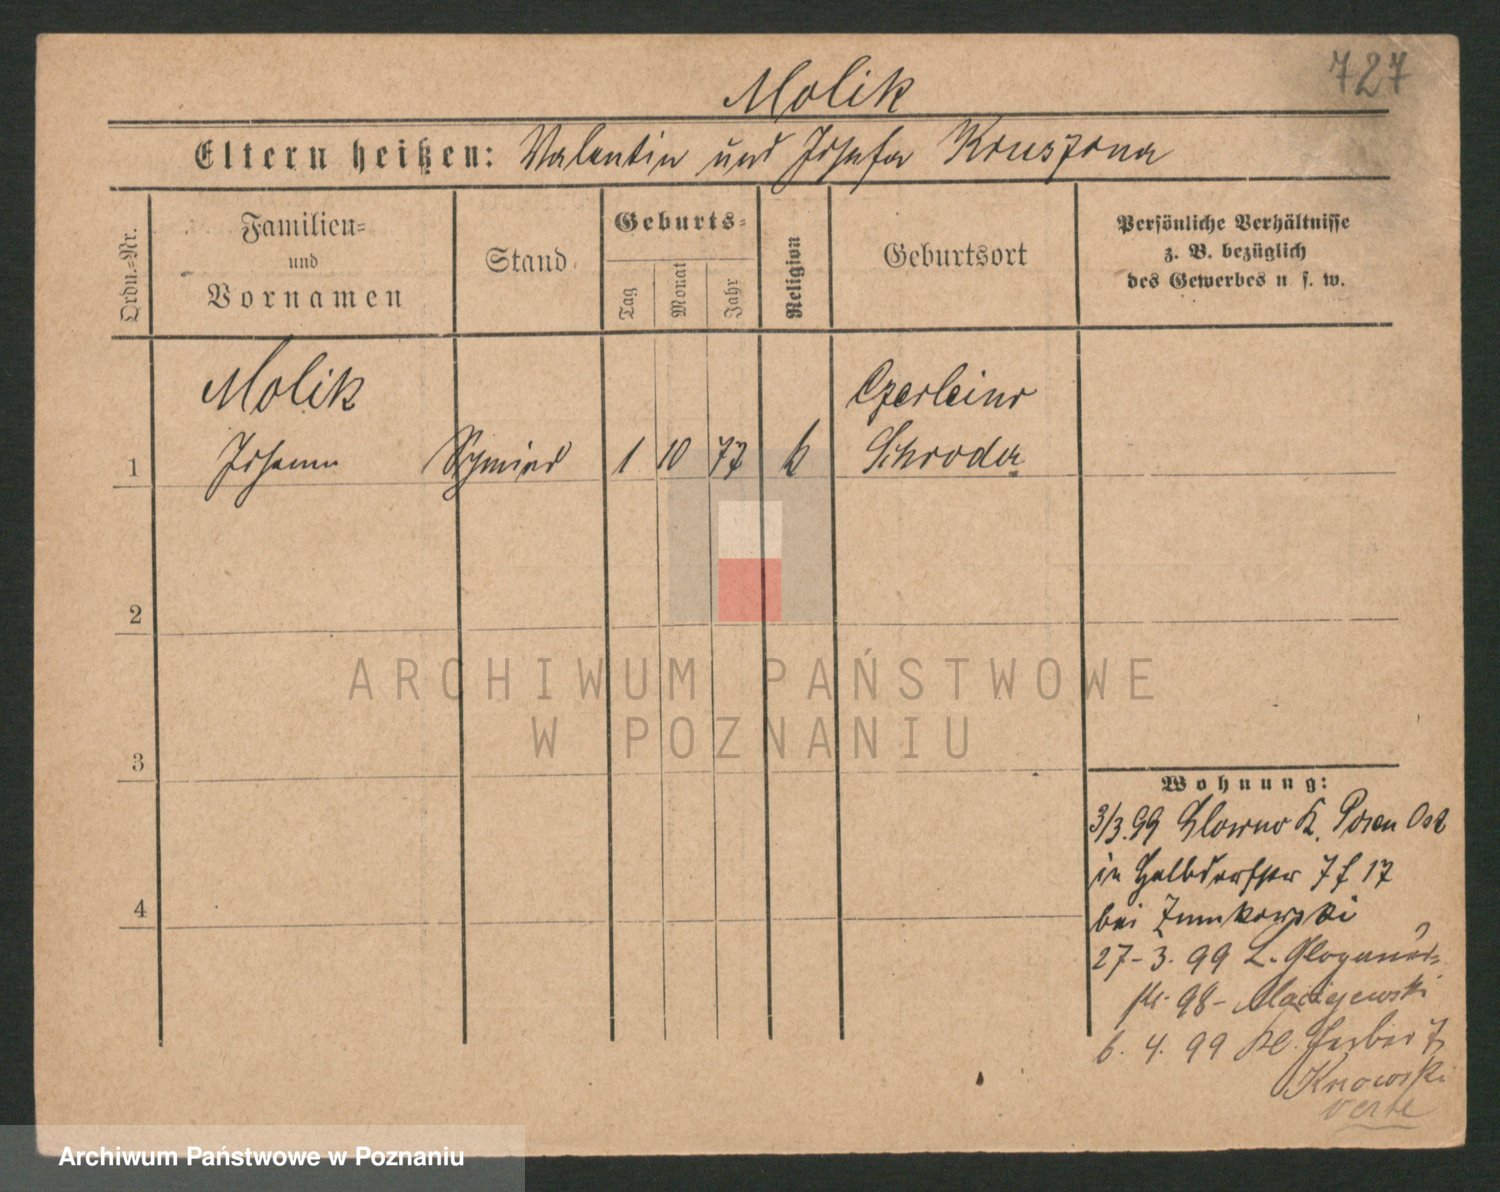 727
Molik
Eltern heißen: Valentin und Josefa Kruszona
Ordn.-Nr.
Familien-
und
Vornamen
Stand
Geburts-
Tag
Monat
Jahr
Religion
Geburtsort
Persönliche Verhältnisse
z. B. bezüglich
des Gewerbes u. s. w.
Molik
Czerleino
1 Johann Schmied 1 10 77 k Schroda
2
ARCHIWUM PAŃSTWOWE
W POZNANIU
3
Wohnung:
3/3.99 Glowno K. Posen Ost
in 17
bei
4
27-3.99 L. Glogauer-
98- Maciejewski
6.4.99 Kl. Gerber 7
Knowski
verte
Archiwum Państwowe w Poznaniu